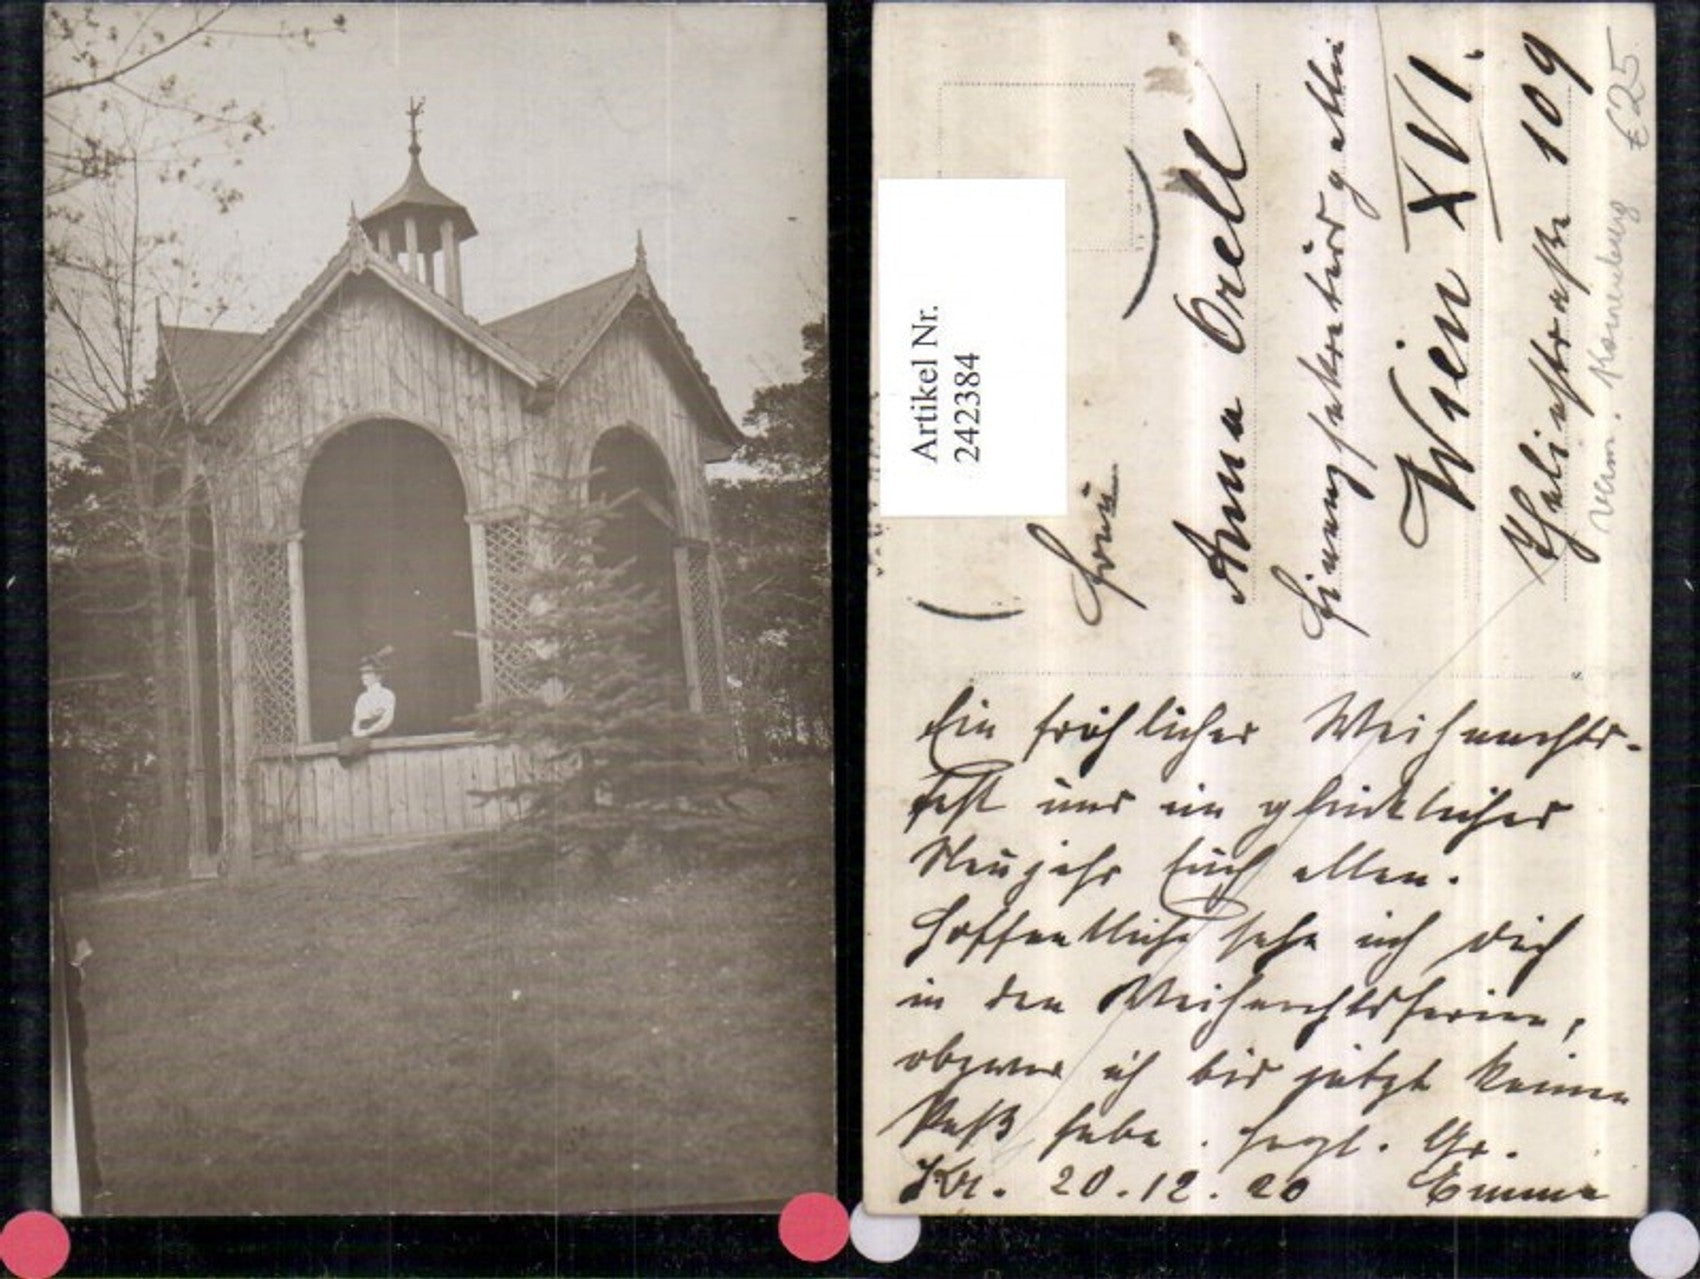 Artikel Nr.
242384
Frau
Anna Orell
Finanzsekretärsgattin
Wien XVI.
Thaliastraße 109
verm. Korneuburg £25
Ein fröhliches Weihnachts-
fest und ein glückliches
Neujahr Euch allen.
Hoffentlich sehe ich Dich
in den Weihnachtsferien,
obzwar ich bis jetzt keinen
Paß habe. Herzl. Gr.
Kr. 20.12.20 Emma